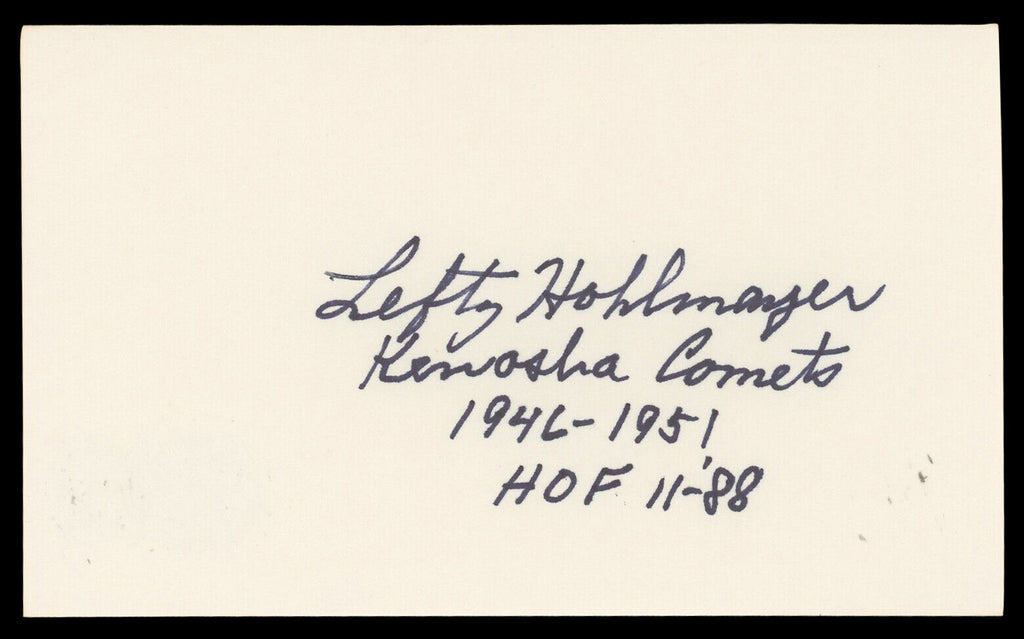 Lefty Hohlmayer
Kenosha Comets
1946-1951
HOF 11-'88